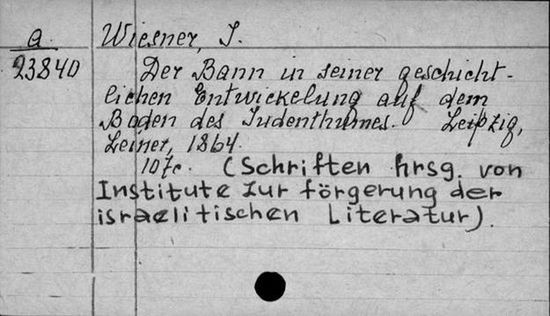 a Wiesner, J.
23840 Der Bann in seiner geschicht-
lichen Entwickelung auf dem
Boden des Judenthumes. Leipzig,
Leiner, 1864.
(Schriften hrsg. von
Institute zur förgerung der
israelitischen Literatur).